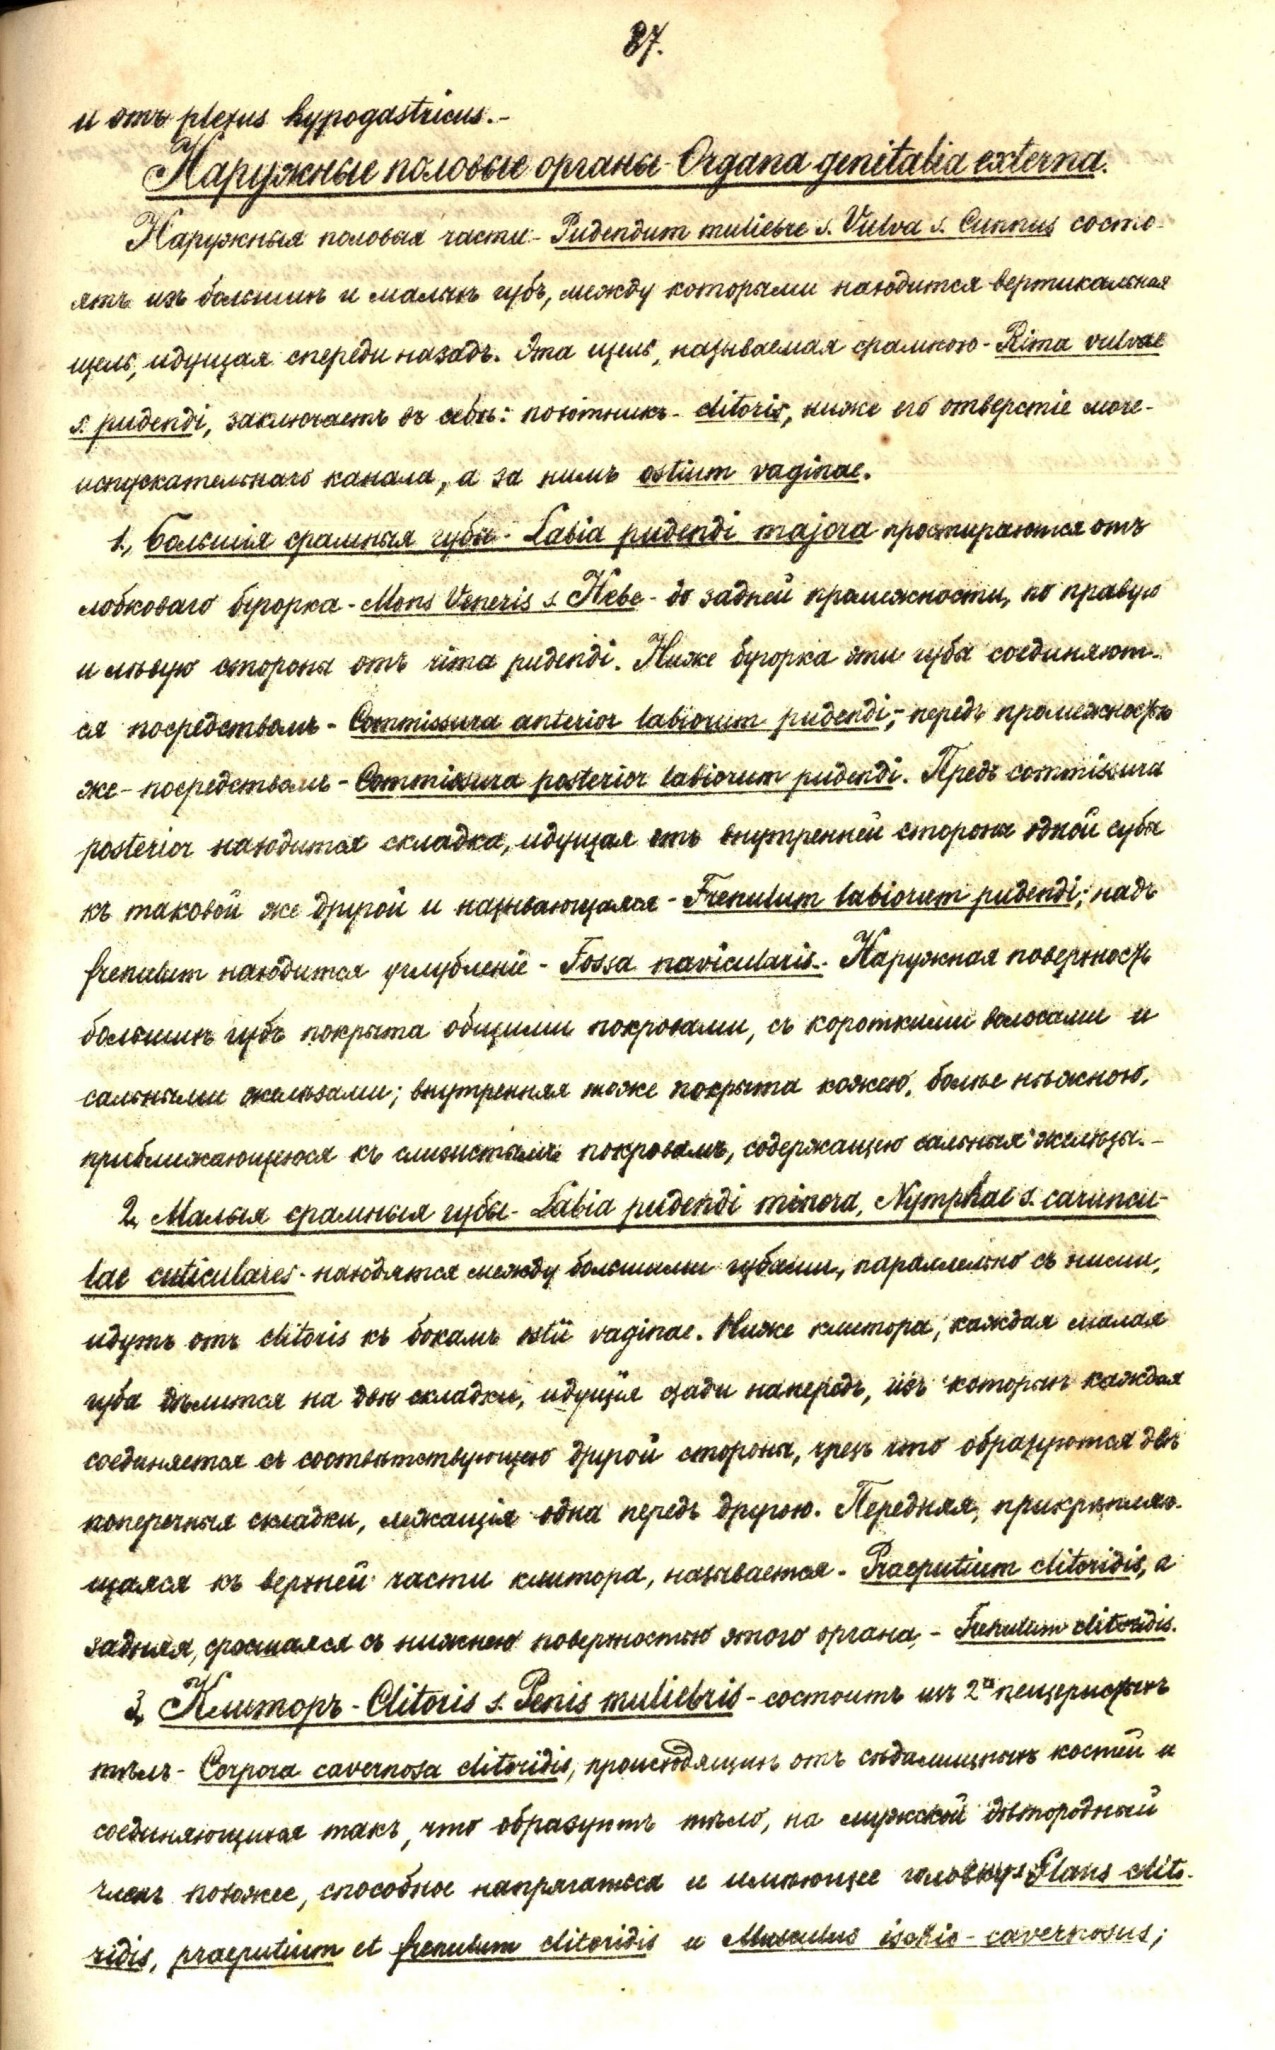 37.
и отъ plexus hypogastricus.-
Наружные половые органы - Organa genitalia externa.
Наружныя половыя части - Pudendum muliebre s. Vulva s. Cunnus состо-
ятъ изъ большихъ и малыхъ губъ, между которыми находится вертикальная
щель, идущая спереди назадъ. Эта щель, называемая срамною - Rima vulvae
s. pudendi, заключаетъ въ себѣ: похотникъ - clitoris, ниже его отверстіе моче-
испускательнаго канала, а за нимъ ostium vaginae.
1., Большія срамныя губы - Labia pudendi majora простираются отъ
лобковаго бугорка - Mons Veneris s. Hebe - до задней промежности, по правую
и лѣвую стороны отъ rima pudendi. Ниже бугорка эти губы соединяют-
ся посредствомъ - Commissura anterior labiorum pudendi; - передъ промежностью
же - посредствомъ - Commissura posterior labiorum pudendi. Предъ commissura
posterior находится складка, идущая отъ внутренней стороны одной губы
къ таковой же другой и называющаяся - Frenulum labiorum pudendi; надъ
frenulum находится углубленіе - Fossa navicularis. - Наружная поверхность
большихъ губъ покрыта общими покровами, съ короткими волосами и
сальными железами; внутренняя тоже покрыта кожею, болѣе нѣжною,
приближающеюся къ слизистымъ покровамъ, содержащею сальныя железы. -
2, Малыя срамныя губы - Labia pudendi minora, Nymphae s. caruncu-
lae cuticulares - находятся между большими губами, параллельно съ ними,
идутъ отъ clitoris къ бокамъ ostii vaginae. Ниже клитора, каждая малая
губа дѣлится на двѣ складки, идущія сзади напередъ, изъ которыхъ каждая
соединяется съ соотвѣтствующею другой стороны, чрезъ что образуются двѣ
поперечныя складки, лежащія одна передъ другою. Передняя, прикрѣпляю-
щаяся къ верхней части клитора, называется - Praeputium clitoridis, а
задняя, сросшаяся съ нижнею поверхностью этого органа, - Frenulum clitoridis.
3, Клиторъ - Clitoris s. Penis muliebris - состоитъ изъ 2хъ пещеристыхъ
тѣлъ - Corpora cavernosa clitoridis, происходящихъ отъ сѣдалищныхъ костей и
соединяющихся такъ, что образуютъ тѣло, на мужской дѣтородный
членъ похожее, способное напрягаться и имѣющее головку - Glans clito-
ridis, praeputium et frenulum clitoridis и Musculus ischio-cavernosus;